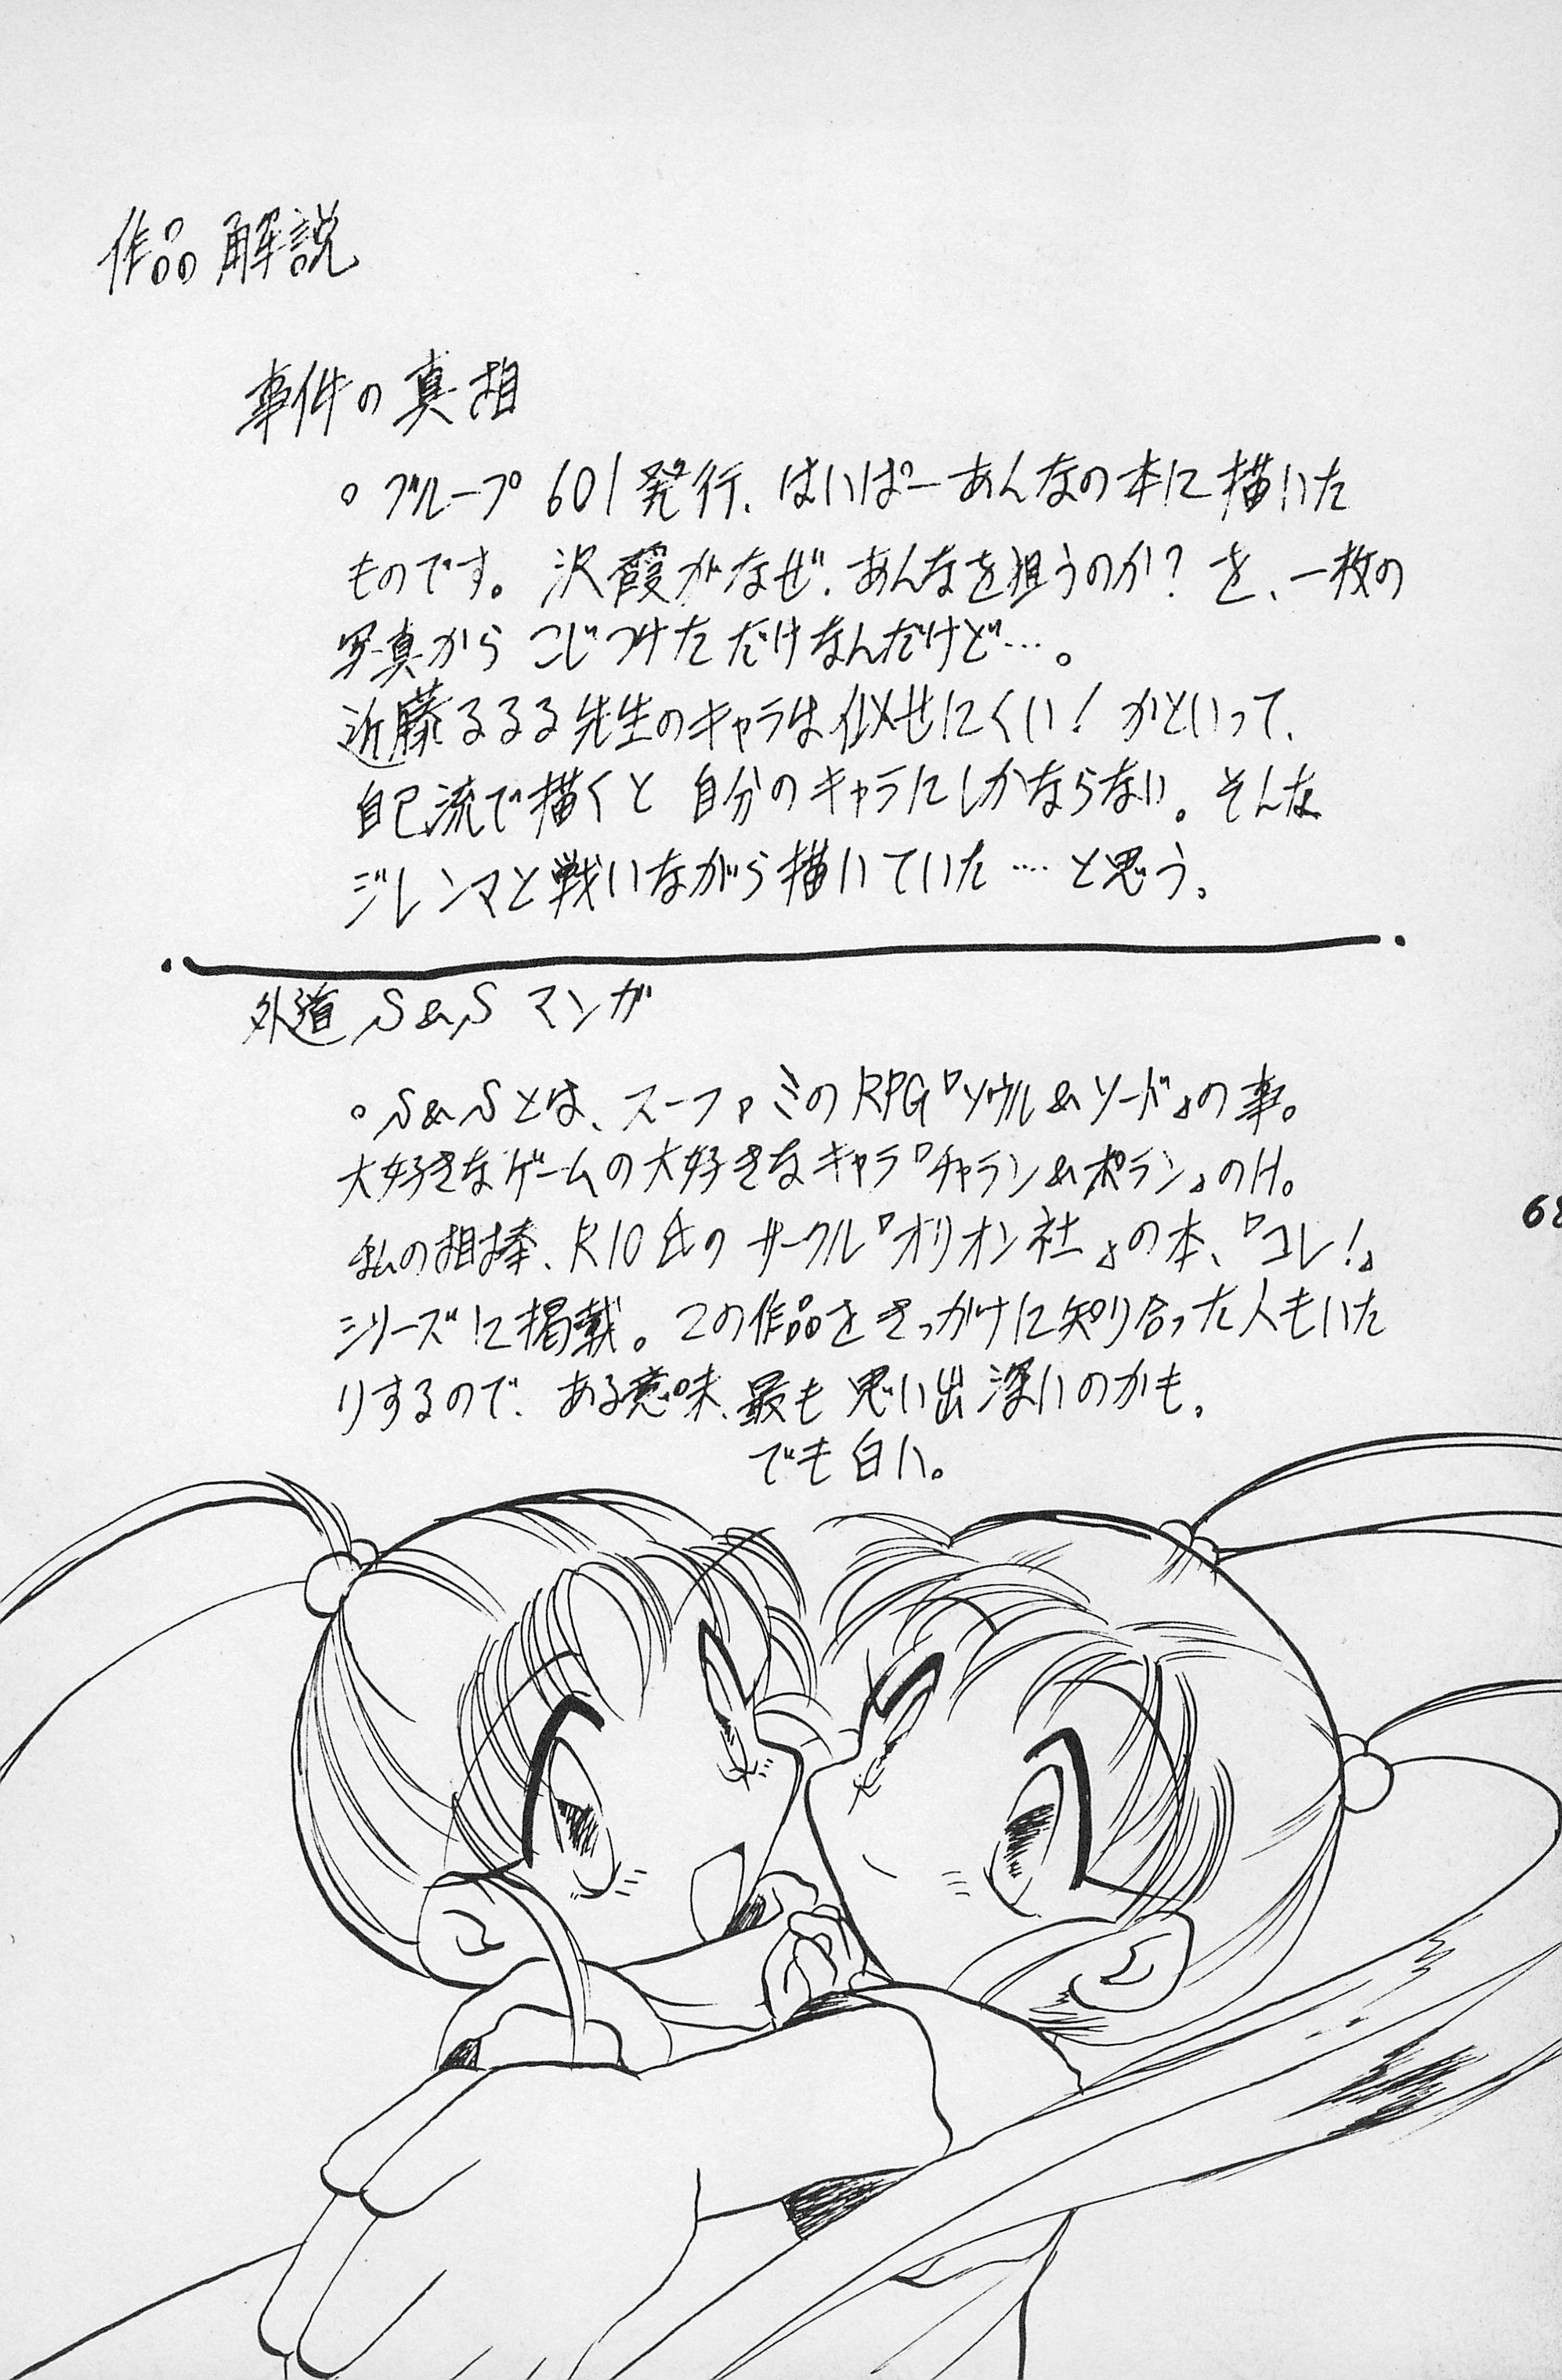 作品解説
事件の真相
○グループ601発行、はいぱーあんなの本に描いた
ものです。沢霞がなぜ、あんなを狙うのか？を、一枚の
写真からこじつけただけなんだけど…。
近藤るるる先生のキャラは似せにくい！かといって、
自己流で描くと自分のキャラにしかならない。そんな
ジレンマと戦いながら描いていた…と思う。
外道S&Sマンガ
○S&Sとは、スーファミのRPG『ソウル&ソード』の事。
大好きなゲームの大好きなキャラ『チャラン&ポラン』のH。
私の相棒、R10氏のサークル『オリオン社』の本、『コレ！』
シリーズに掲載。この作品をきっかけに知り合った人もいた
りするので、ある意味、最も思い出深いのかも。
でも白い。